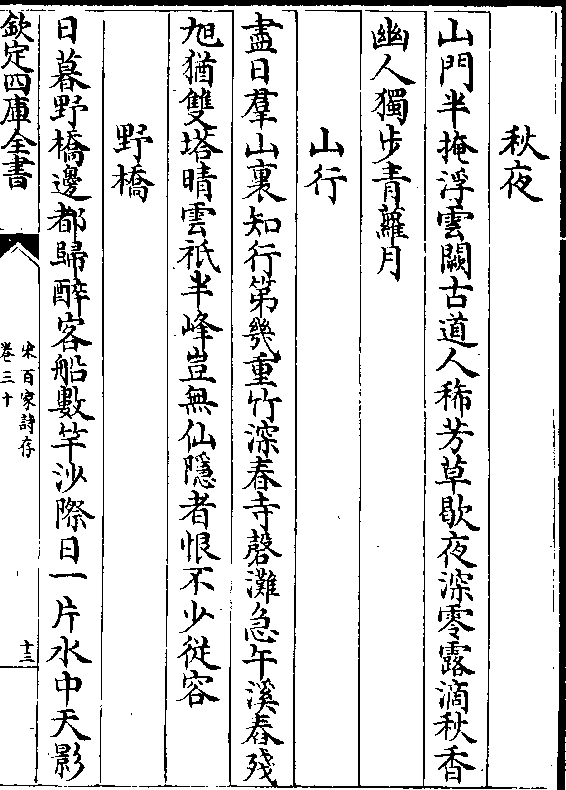 秋夜
山門半掩浮雲闕古道人稀芳草歇夜深零露滴秋香
幽人獨步青蘿月
山行
盡日羣山裏知行第幾重竹深春寺磬灘急午溪舂殘
旭猶雙塔晴雲祇半峰豈無仙隱者恨不少従容
野橋
日暮野橋邊都歸醉客船數竿沙際日一片水中天影
欽定四庫全書
宋百家詩存
卷三十
十三